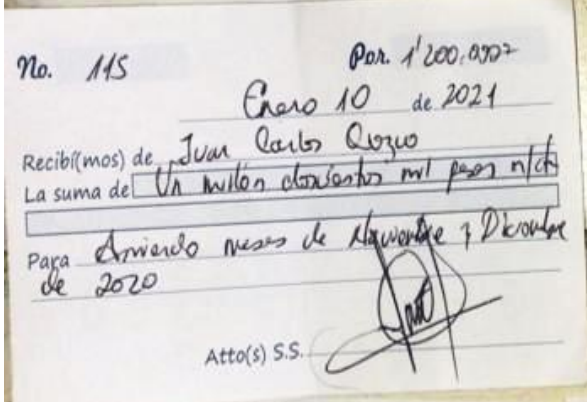 No. 115 Por. 1'200.000=
Enero 10 de 2021
Recibí(mos) de Juan Carlos
La suma de Un millón doscientos mil pesos m/cte
Para Arriendo meses de Noviembre y Diciembre
de 2020
Atto(s) S.S.